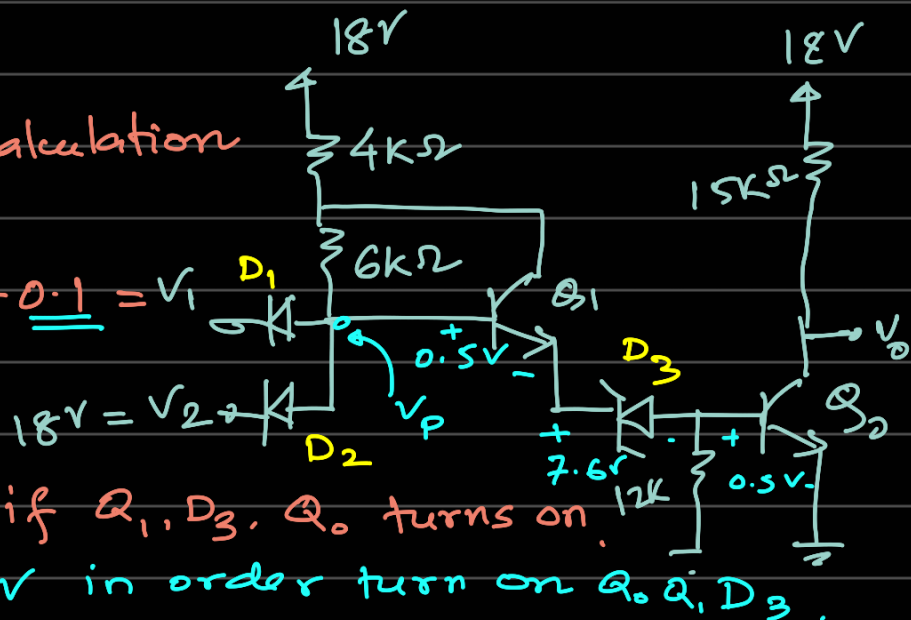 18V 18V
alculation
4KΩ
15KΩ
6KΩ
D1
-0.1 = V1
Q1
+ 0.5V -
D3
V0
18V = V2
VP
Q0
D2
+ 7.6V -
12K
+ 0.5V -
if Q1, D3, Q0 turns on.
V in order turn on Q0 Q1 D3.